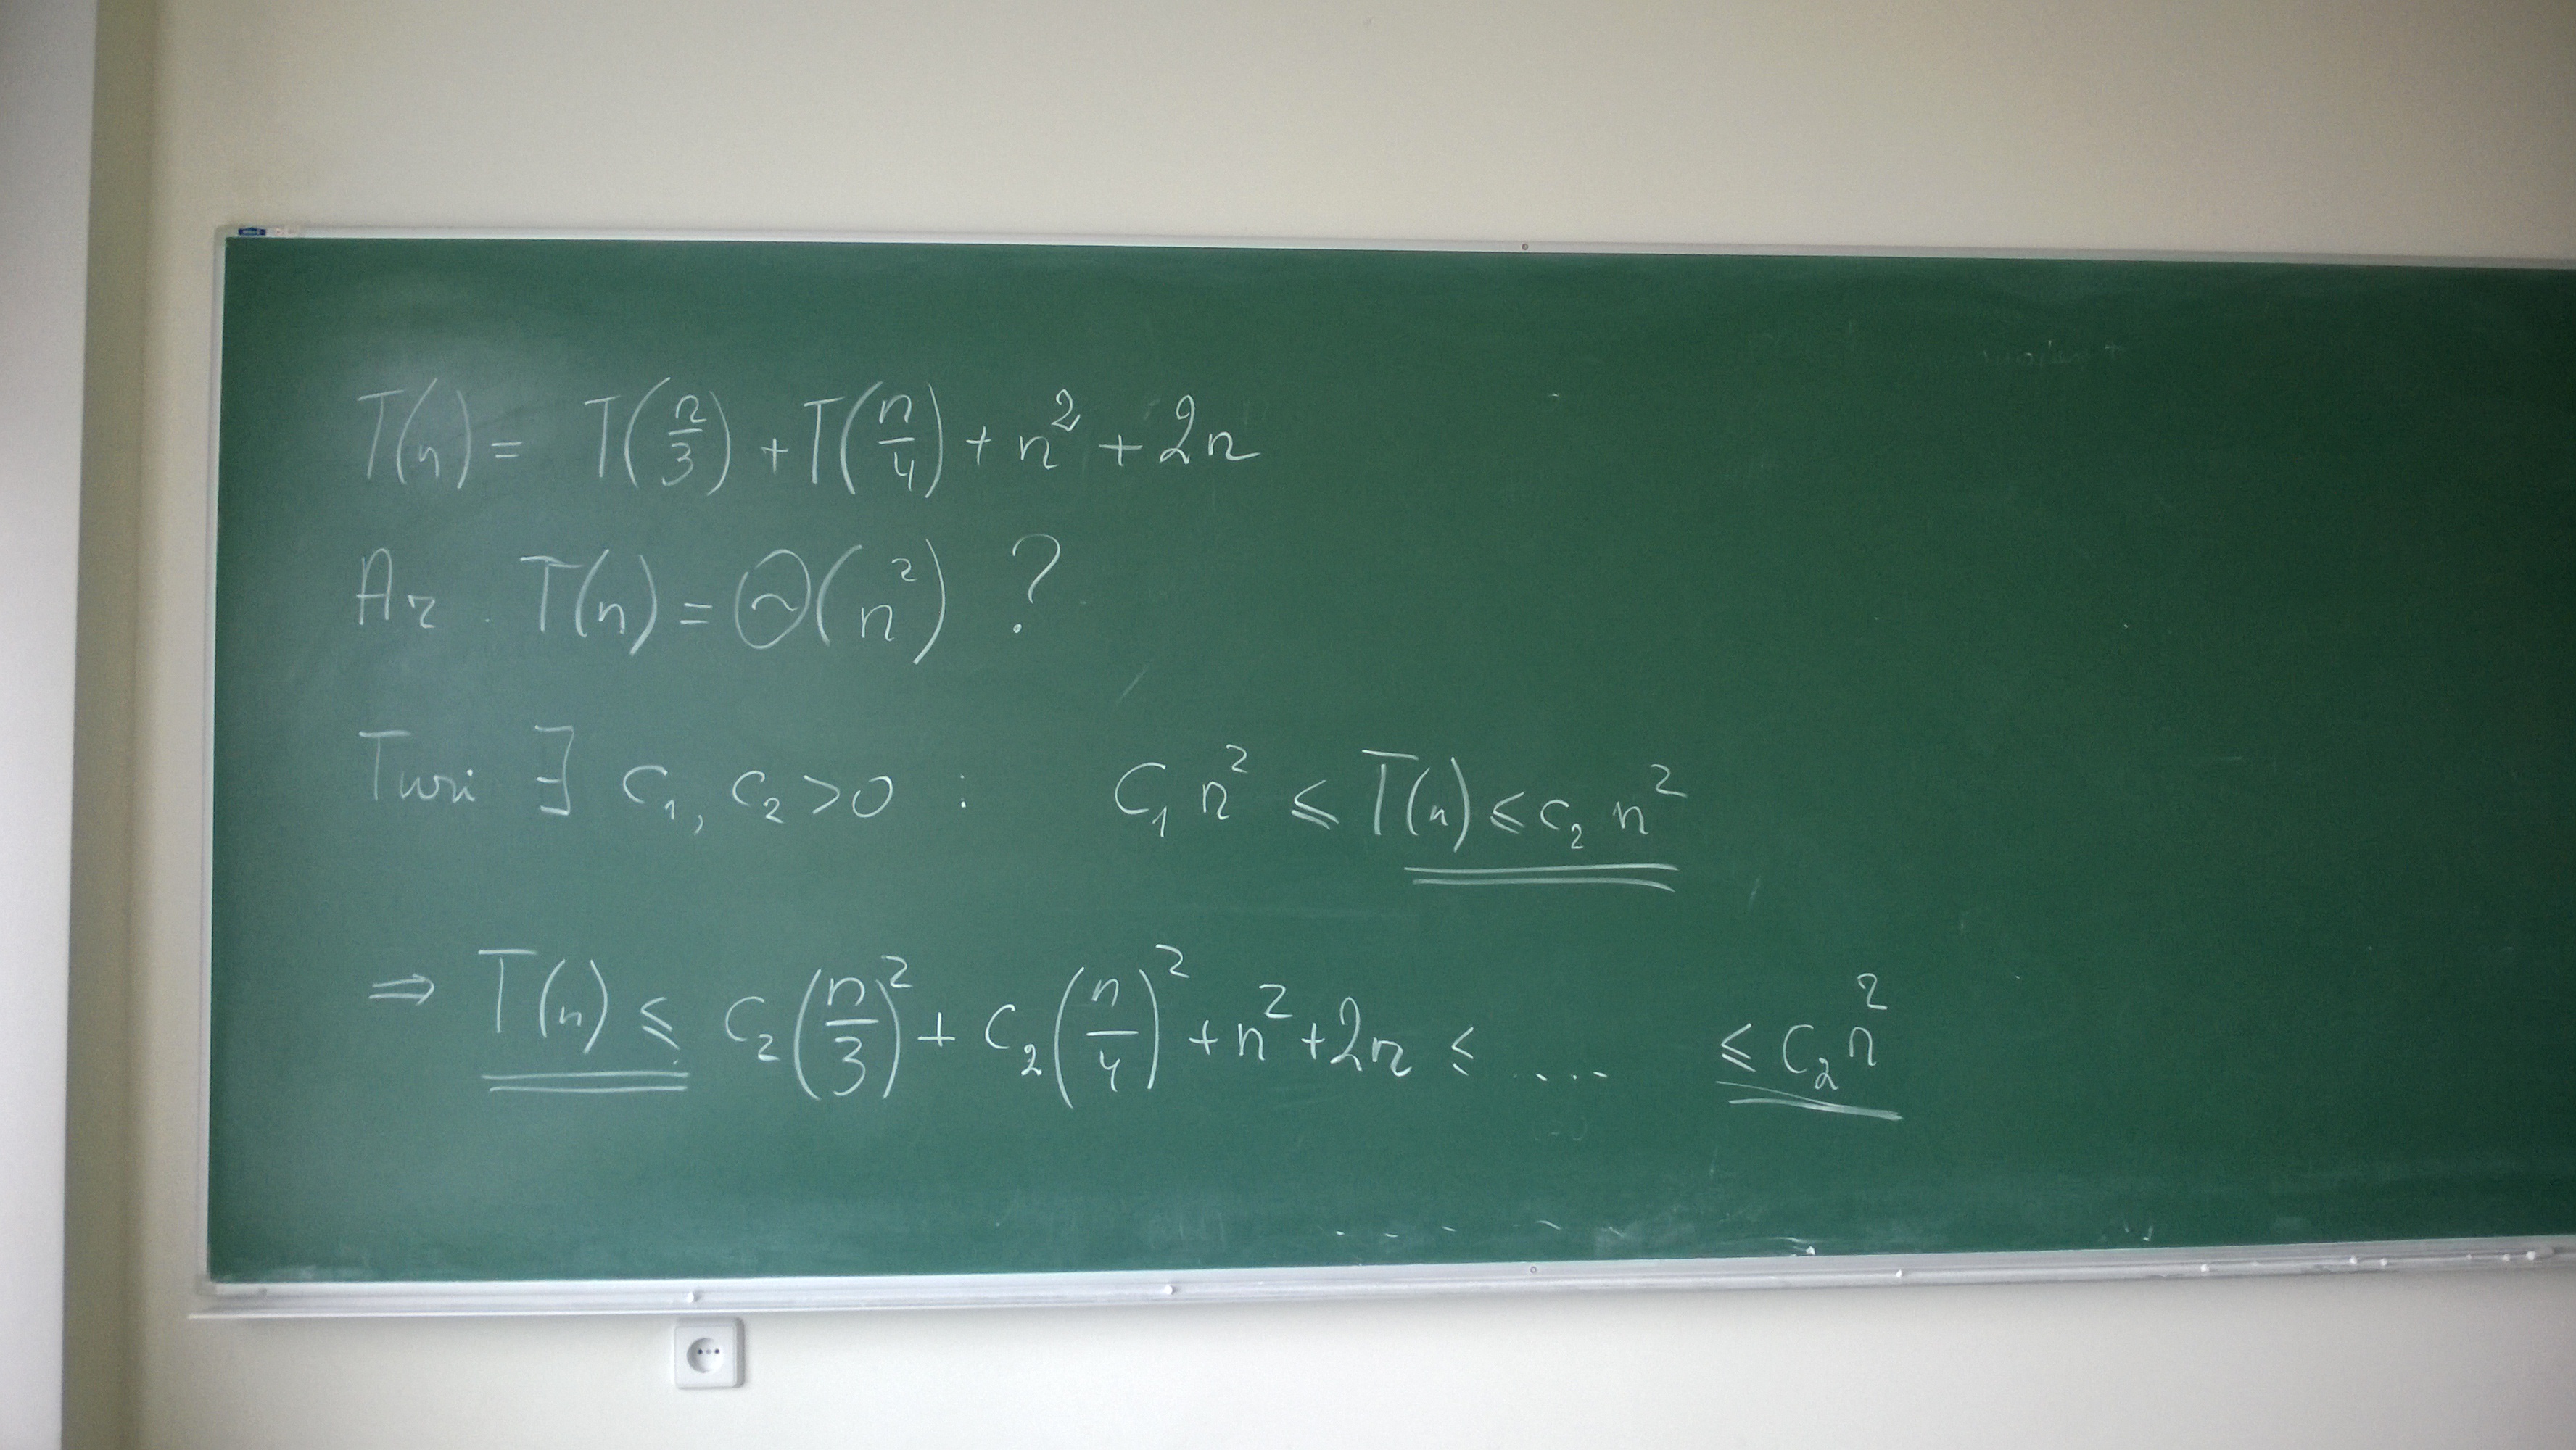 T(n) = T(n/3) + T(n/4) + n² + 2n
Ar T(n) = Θ(n²) ?
Turi ∃ c₁, c₂ > 0 : c₁ n² ≤ T(n) ≤ c₂ n²
⇒ T(n) ≤ c₂(n/3)² + c₂(n/4)² + n² + 2n ≤ .... ≤ c₂n²